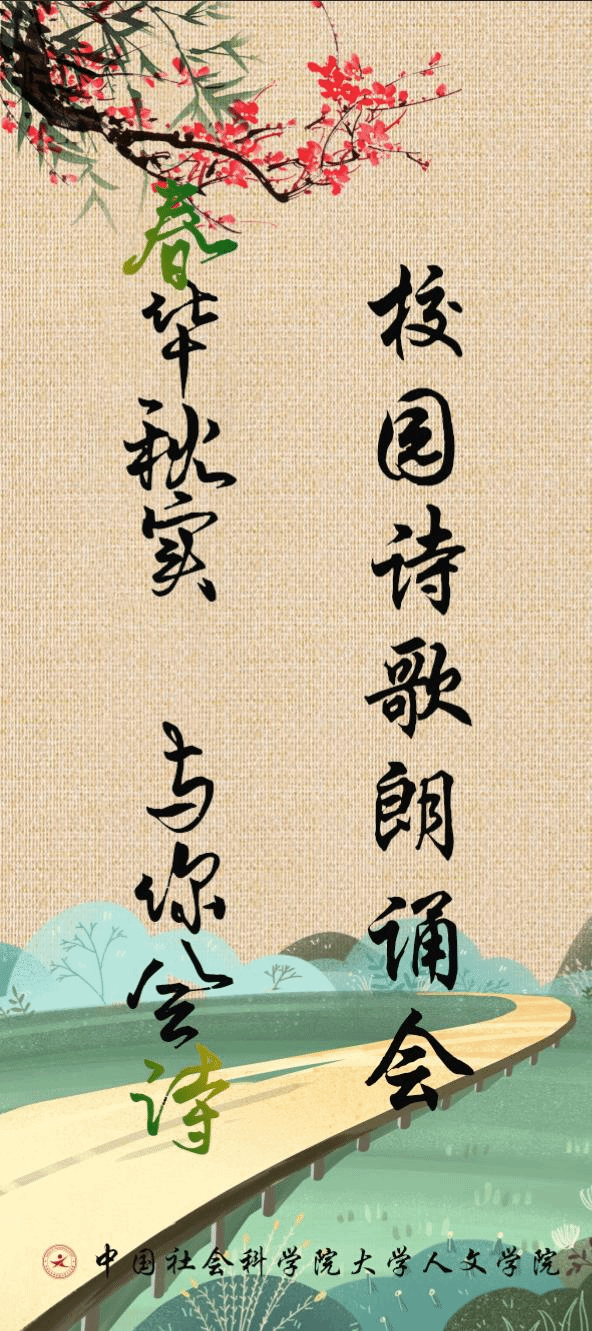 校园诗歌朗诵会
春华秋实 与你公诗
中国社会科学院大学人文学院